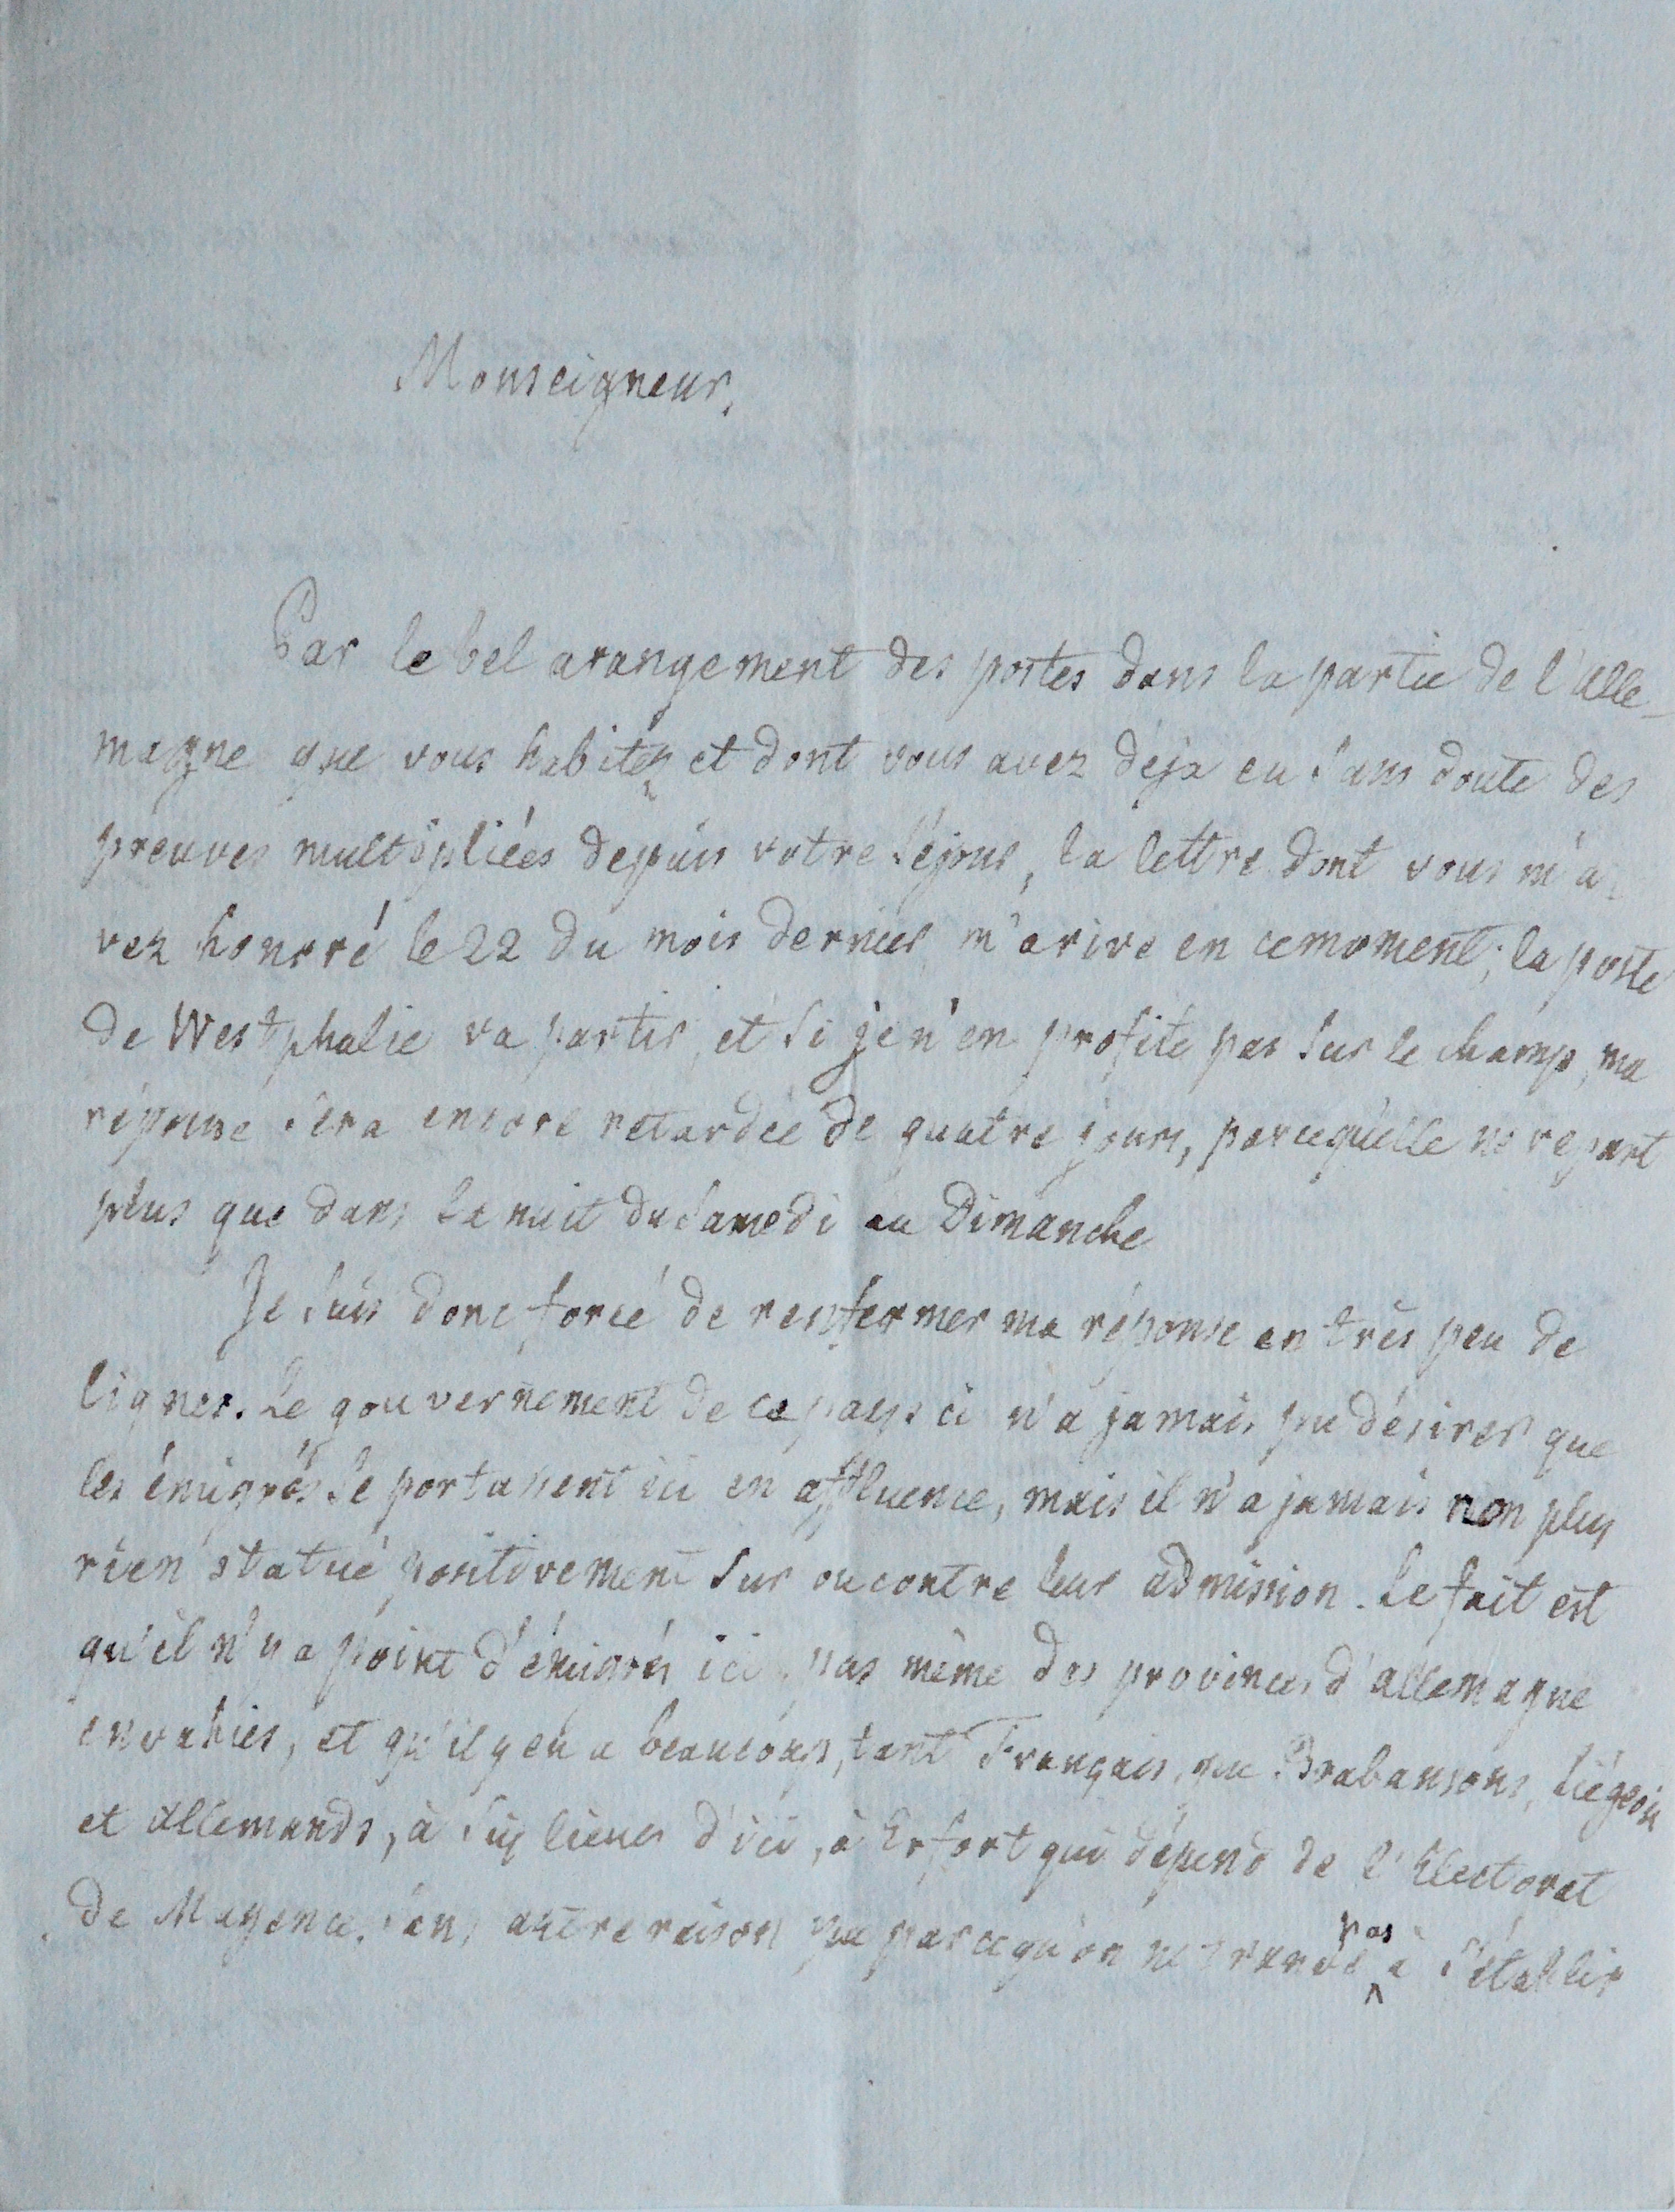 Monseigneur,
Par le bel arangement des postes dans la partie de l'Alle-
magne que vous habitez et dont vous avez déja eu sans doute des
preuves multipliées depuis votre séjour, la lettre dont vous m'a-
vez honoré le 22 du mois dernier m'arive en ce moment; la poste
de Westphalie va partir, et si je n'en profite pas sur le champ, ma
réponse sera encore retardée de quatre jours, parcequ'elle ne repart
plus que dans la nuit du Samedi au Dimanche
Je suis donc forcé de renfermer ma réponse en très peu de
lignes. Le gouvernement de ce pays ci n'a jamais pu désirer que
les émigrés se portassent ici en affluence, mais il n'a jamais non plus
rien statué positivement sur ou contre leur admission. Le fait est
qu'il n'y a point d'émigrés ici, pas même des provinces d'allemagne
envahies, et qu'il y en a beaucoup, tant Français, que Brabansons, Liégeois
et Allemands, à six lieues d'ici, à Erfort qui dépend de l'Electorat
de Mayence, sans autre raison que parcequ'on ne trouve pas à s'établir